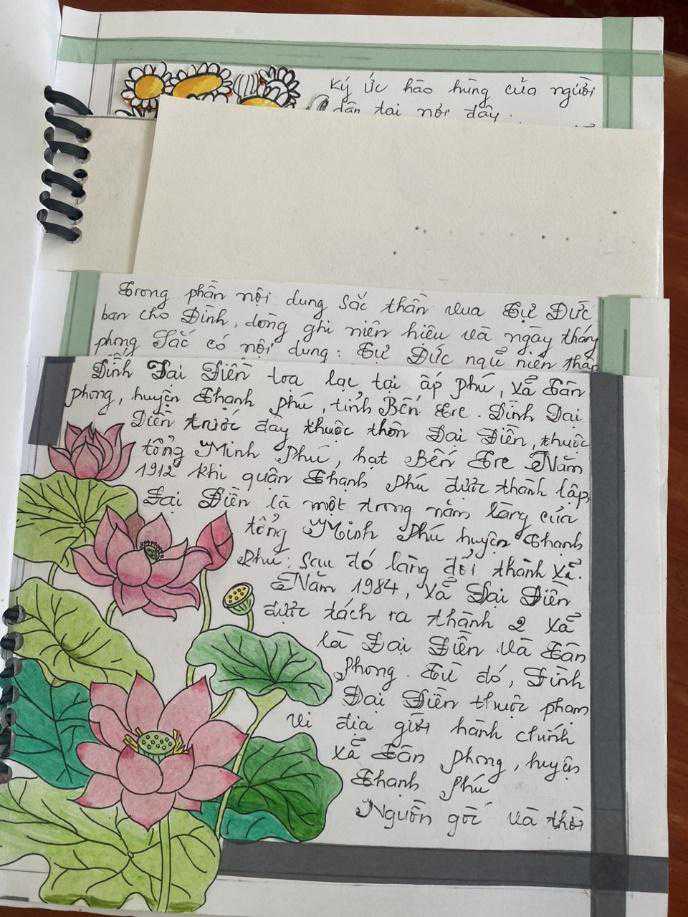 Ký ức hào hùng của người
dân tại nơi đây.
Trong phần nội dung Sắc thần vua Tự Đức
ban cho Đình, dòng ghi niên hiệu và ngày tháng
phong Sắc có nội dung: Tự Đức ngũ niên thập
Đình Đại Điền tọa lạc tại ấp Phú, xã Tân
phong, huyện Thạnh phú, tỉnh Bến Tre. Đình Đại
Điền trước đây thuộc thôn Đại Điền, thuộc
tổng Minh Phú, hạt Bến Tre Năm
1912 khi quận Thạnh Phú được thành lập,
Đại Điền là một trong năm làng của
tổng Minh Phú huyện Thạnh
Phú. Sau đó làng đổi thành xã.
Năm 1984, xã Đại Điền
được tách ra thành 2 xã
là Đại Điền và Tân
Phong. Từ đó, Đình
Đại Điền thuộc phạm
vi địa giới hành chính
xã Tân Phong, huyện
Thạnh Phú
Nguồn gốc và thời